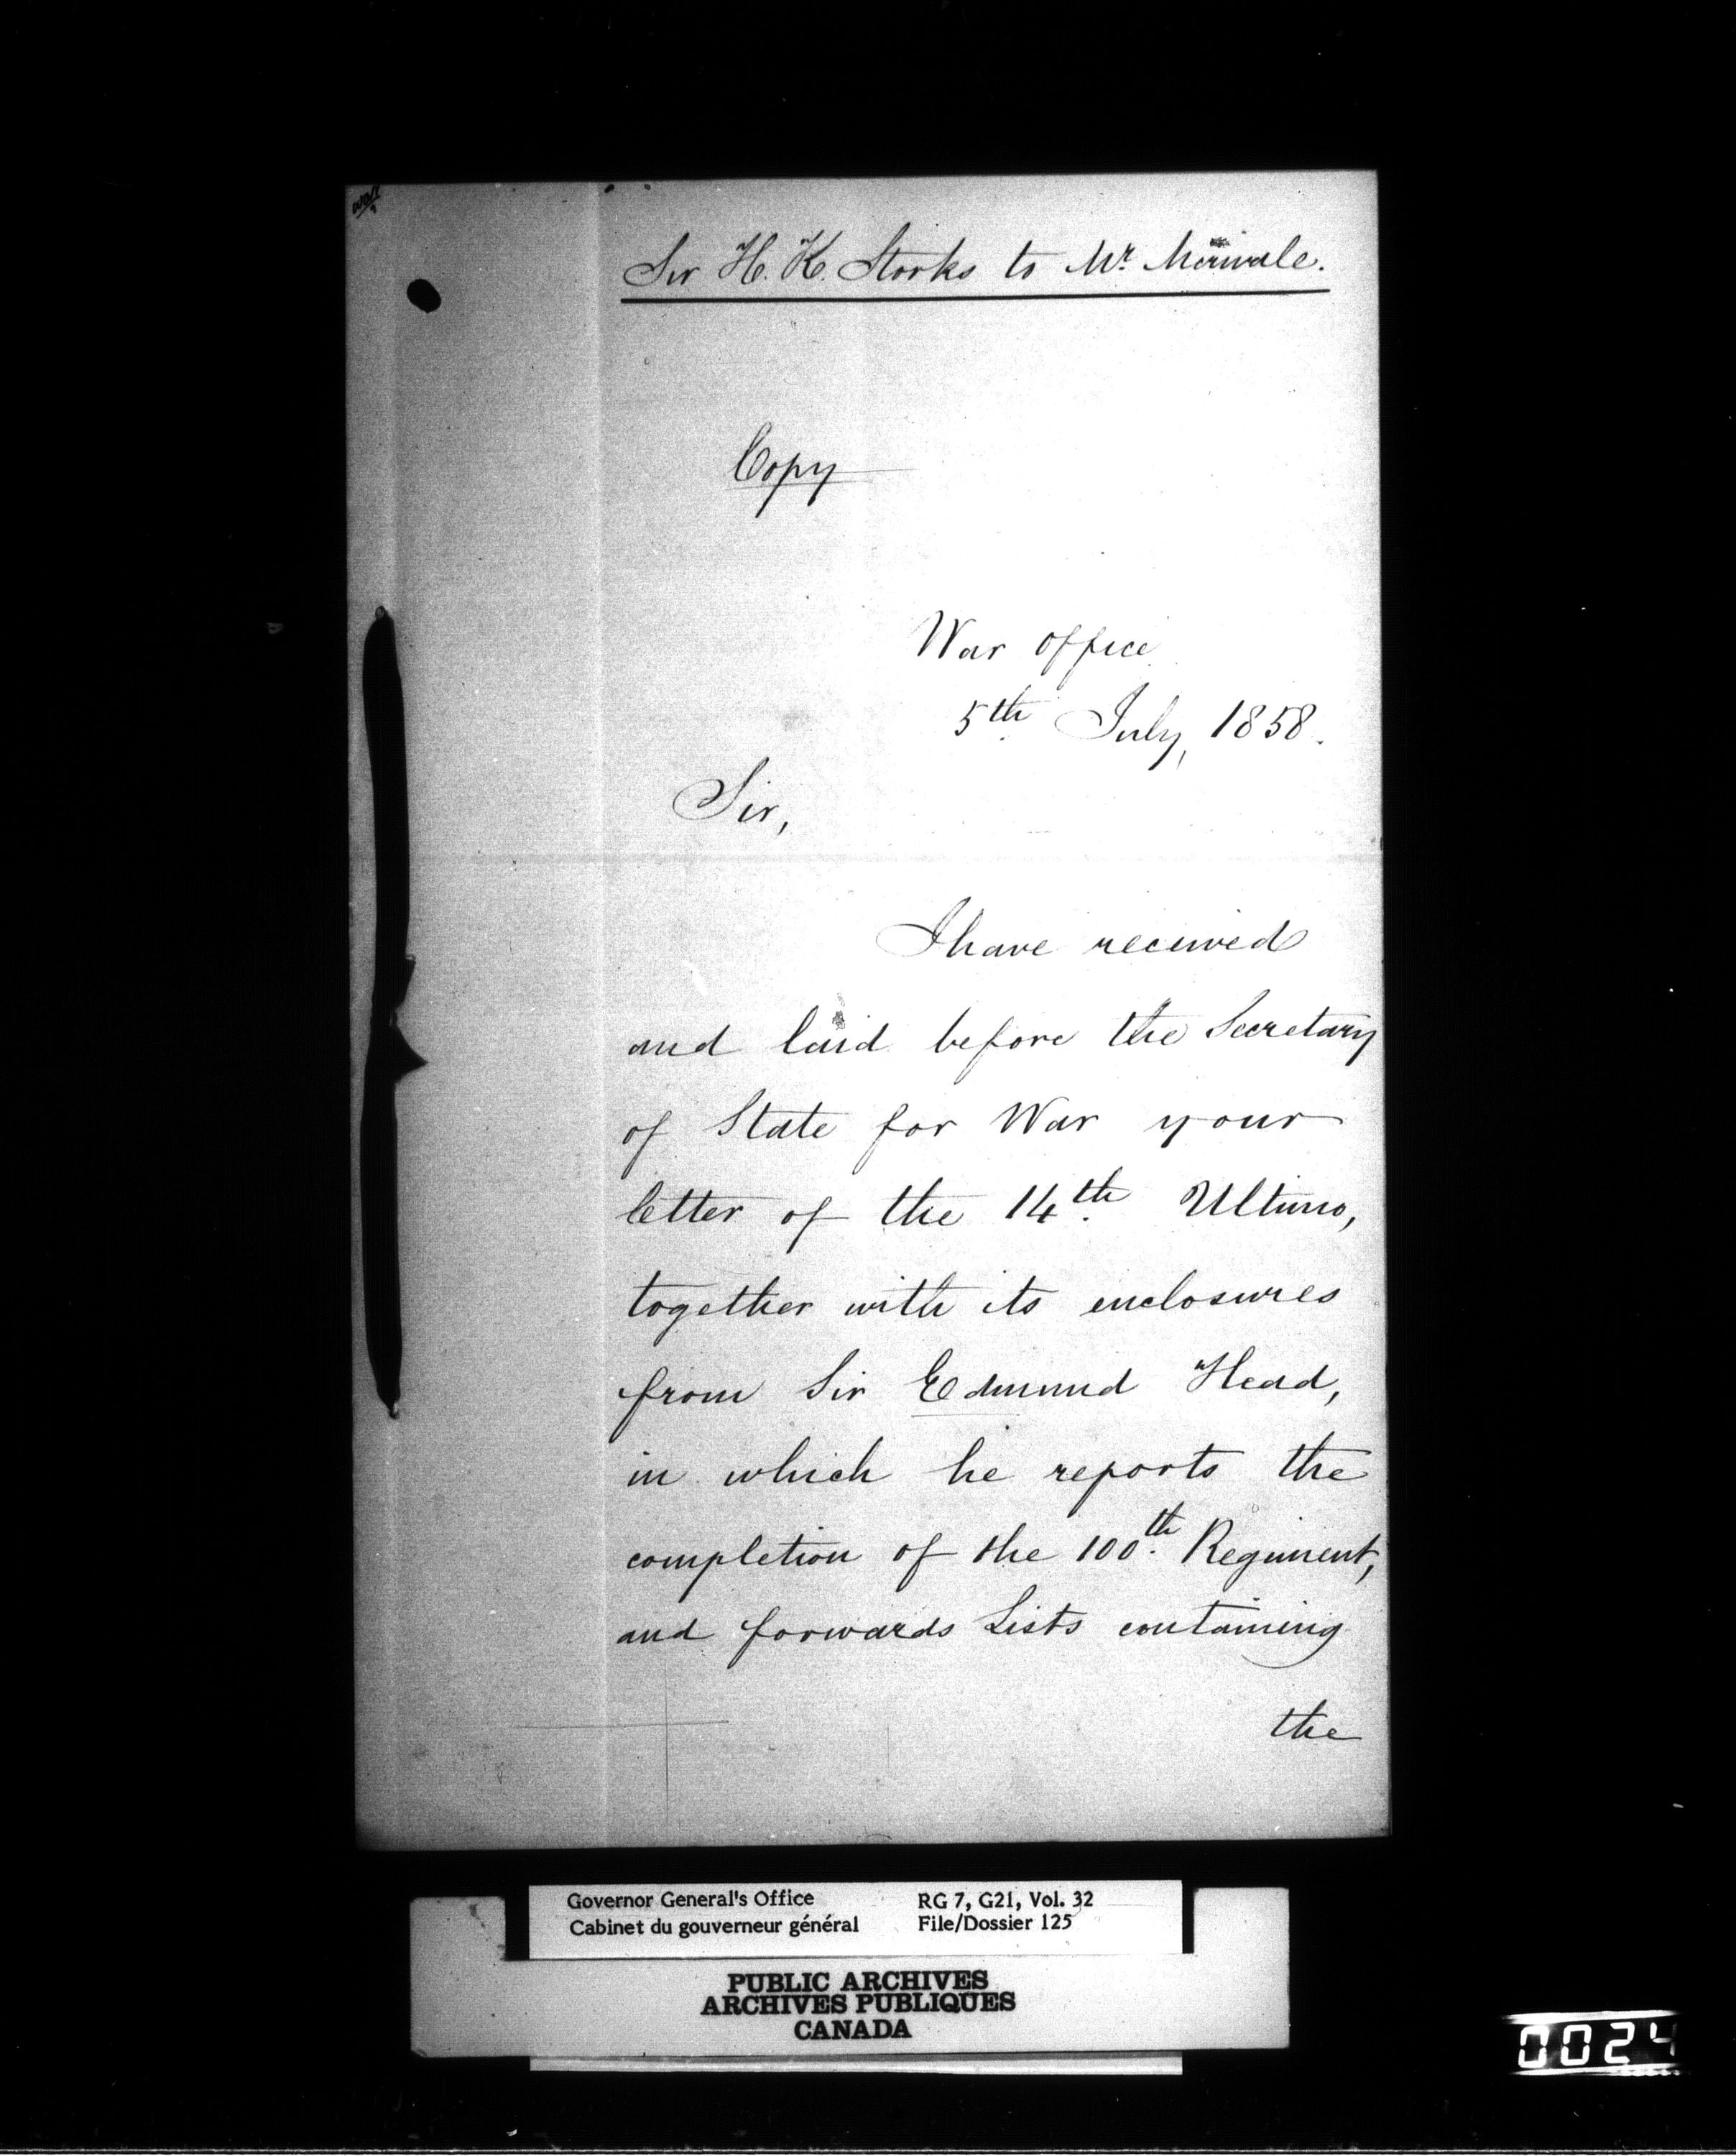 Sir H. K. Storks to Mr. Merivale.
Copy
War Office
5th July, 1858.
Sir,
I have received
and laid before the Secretary
of State for War your
letter of the 14th Ultimo,
together with its enclosures
from Sir Edmund Head,
in which he reports the
completion of the 100th Regiment,
and forwards Lists containing
the
Governor General's Office
Cabinet du gouverneur général
RG 7, G21, Vol. 32
File/Dossier 125
PUBLIC ARCHIVES
ARCHIVES PUBLIQUES
CANADA
0024